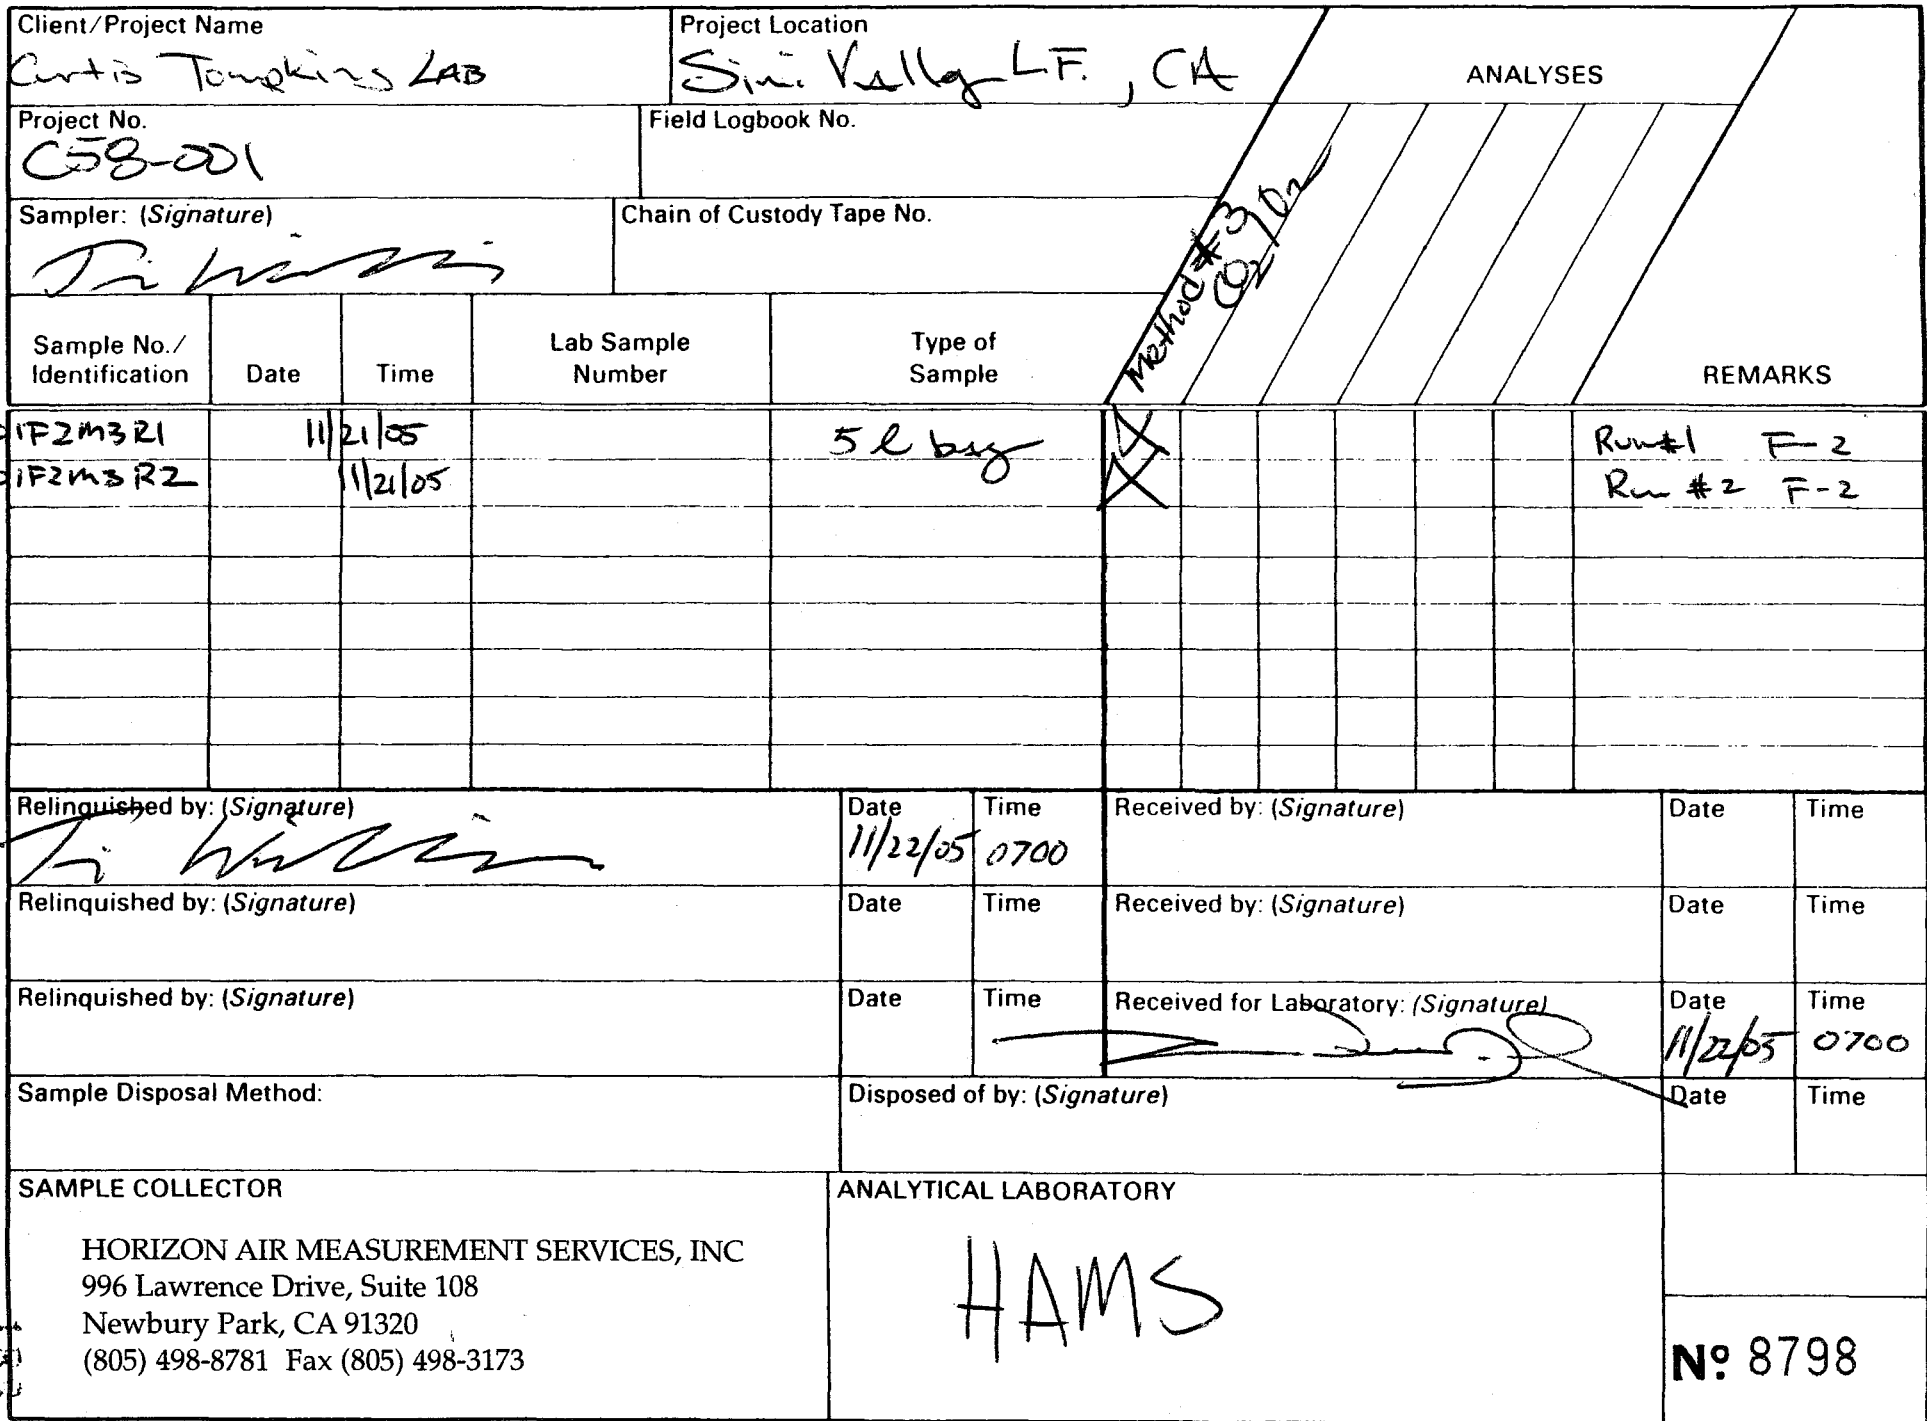 Client/Project Name
Curtis Tompkins LAB
Project Location
Simi Valley L.F., CA
ANALYSES
Project No.
C58-001
Field Logbook No.
Sampler: (Signature)
Chain of Custody Tape No.
Method #3
CO2/O2
Sample No./
Identification
Date
Time
Lab Sample
Number
Type of
Sample
REMARKS
1F2M3R1 11/21/05 5 l bag X Run #1 F-2
1F2M3R2 11/21/05 X Run #2 F-2
Relinquished by: (Signature)
Date
11/22/05
Time
0700
Received by: (Signature)
Date
Time
Relinquished by: (Signature)
Date
Time
Received by: (Signature)
Date
Time
Relinquished by: (Signature)
Date
Time
Received for Laboratory: (Signature)
Date
11/22/05
Time
0700
Sample Disposal Method:
Disposed of by: (Signature)
Date
Time
SAMPLE COLLECTOR
HORIZON AIR MEASUREMENT SERVICES, INC
996 Lawrence Drive, Suite 108
Newbury Park, CA 91320
(805) 498-8781 Fax (805) 498-3173
ANALYTICAL LABORATORY
HAMS
Nº 8798